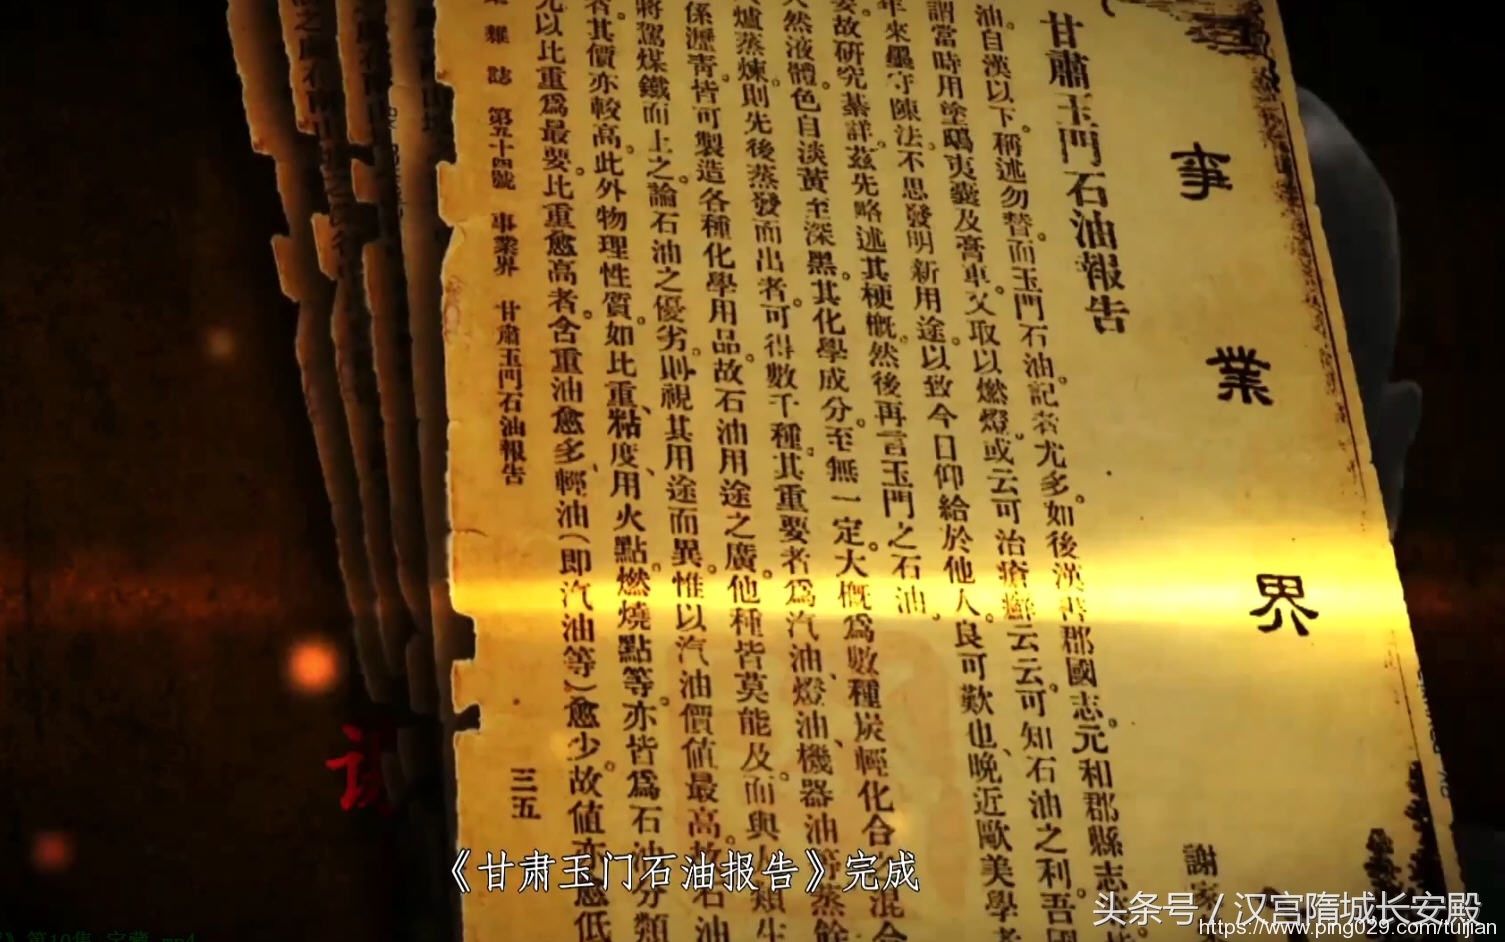 事業界
謝家
甘肅玉門石油報告
油。自漢以下。稱述勿替。而玉門石油。記者尤多。如後漢書郡國志。元和郡縣志。
謂當時用塗鴟夷囊及膏車。又取以燃燈。或云可治瘡癬云云。可知石油之利。吾國
年來墨守陳法。不思發明新用途。以致今日仰給於他人。良可歎也、晚近歐美學者
要。故研究綦詳。茲先略述其梗概。然後再言玉門之石油。
天然液體。色自淡黃至深黑。其化學成分。至無一定。大概爲數種炭輕化合混合
爐蒸煉。則先後蒸發而出者。可得數千種。其重要者爲汽油、燈油、機器油等。蒸餘
係瀝青。皆可製造各種化學用品。故石油用途之廣。他種皆莫能及。而與人類生
將駕煤鐵而上之。論石油之優劣。則視其用途而異。惟以汽油價值最高。故石油
者。其價亦較高。此外物理性質。如比重、粘度、用火點。燃燒點等。亦皆爲石油分類
尤以比重爲最要。比重愈高者。含重油愈多、輕油(即汽油等)愈少。故值亦愈低
雜誌 第五十四號 事業界 甘肅玉門石油報告 三五
《甘肃玉门石油报告》完成
头条号 / 汉宫隋城长安殿
https://www.ping029.com/tujian